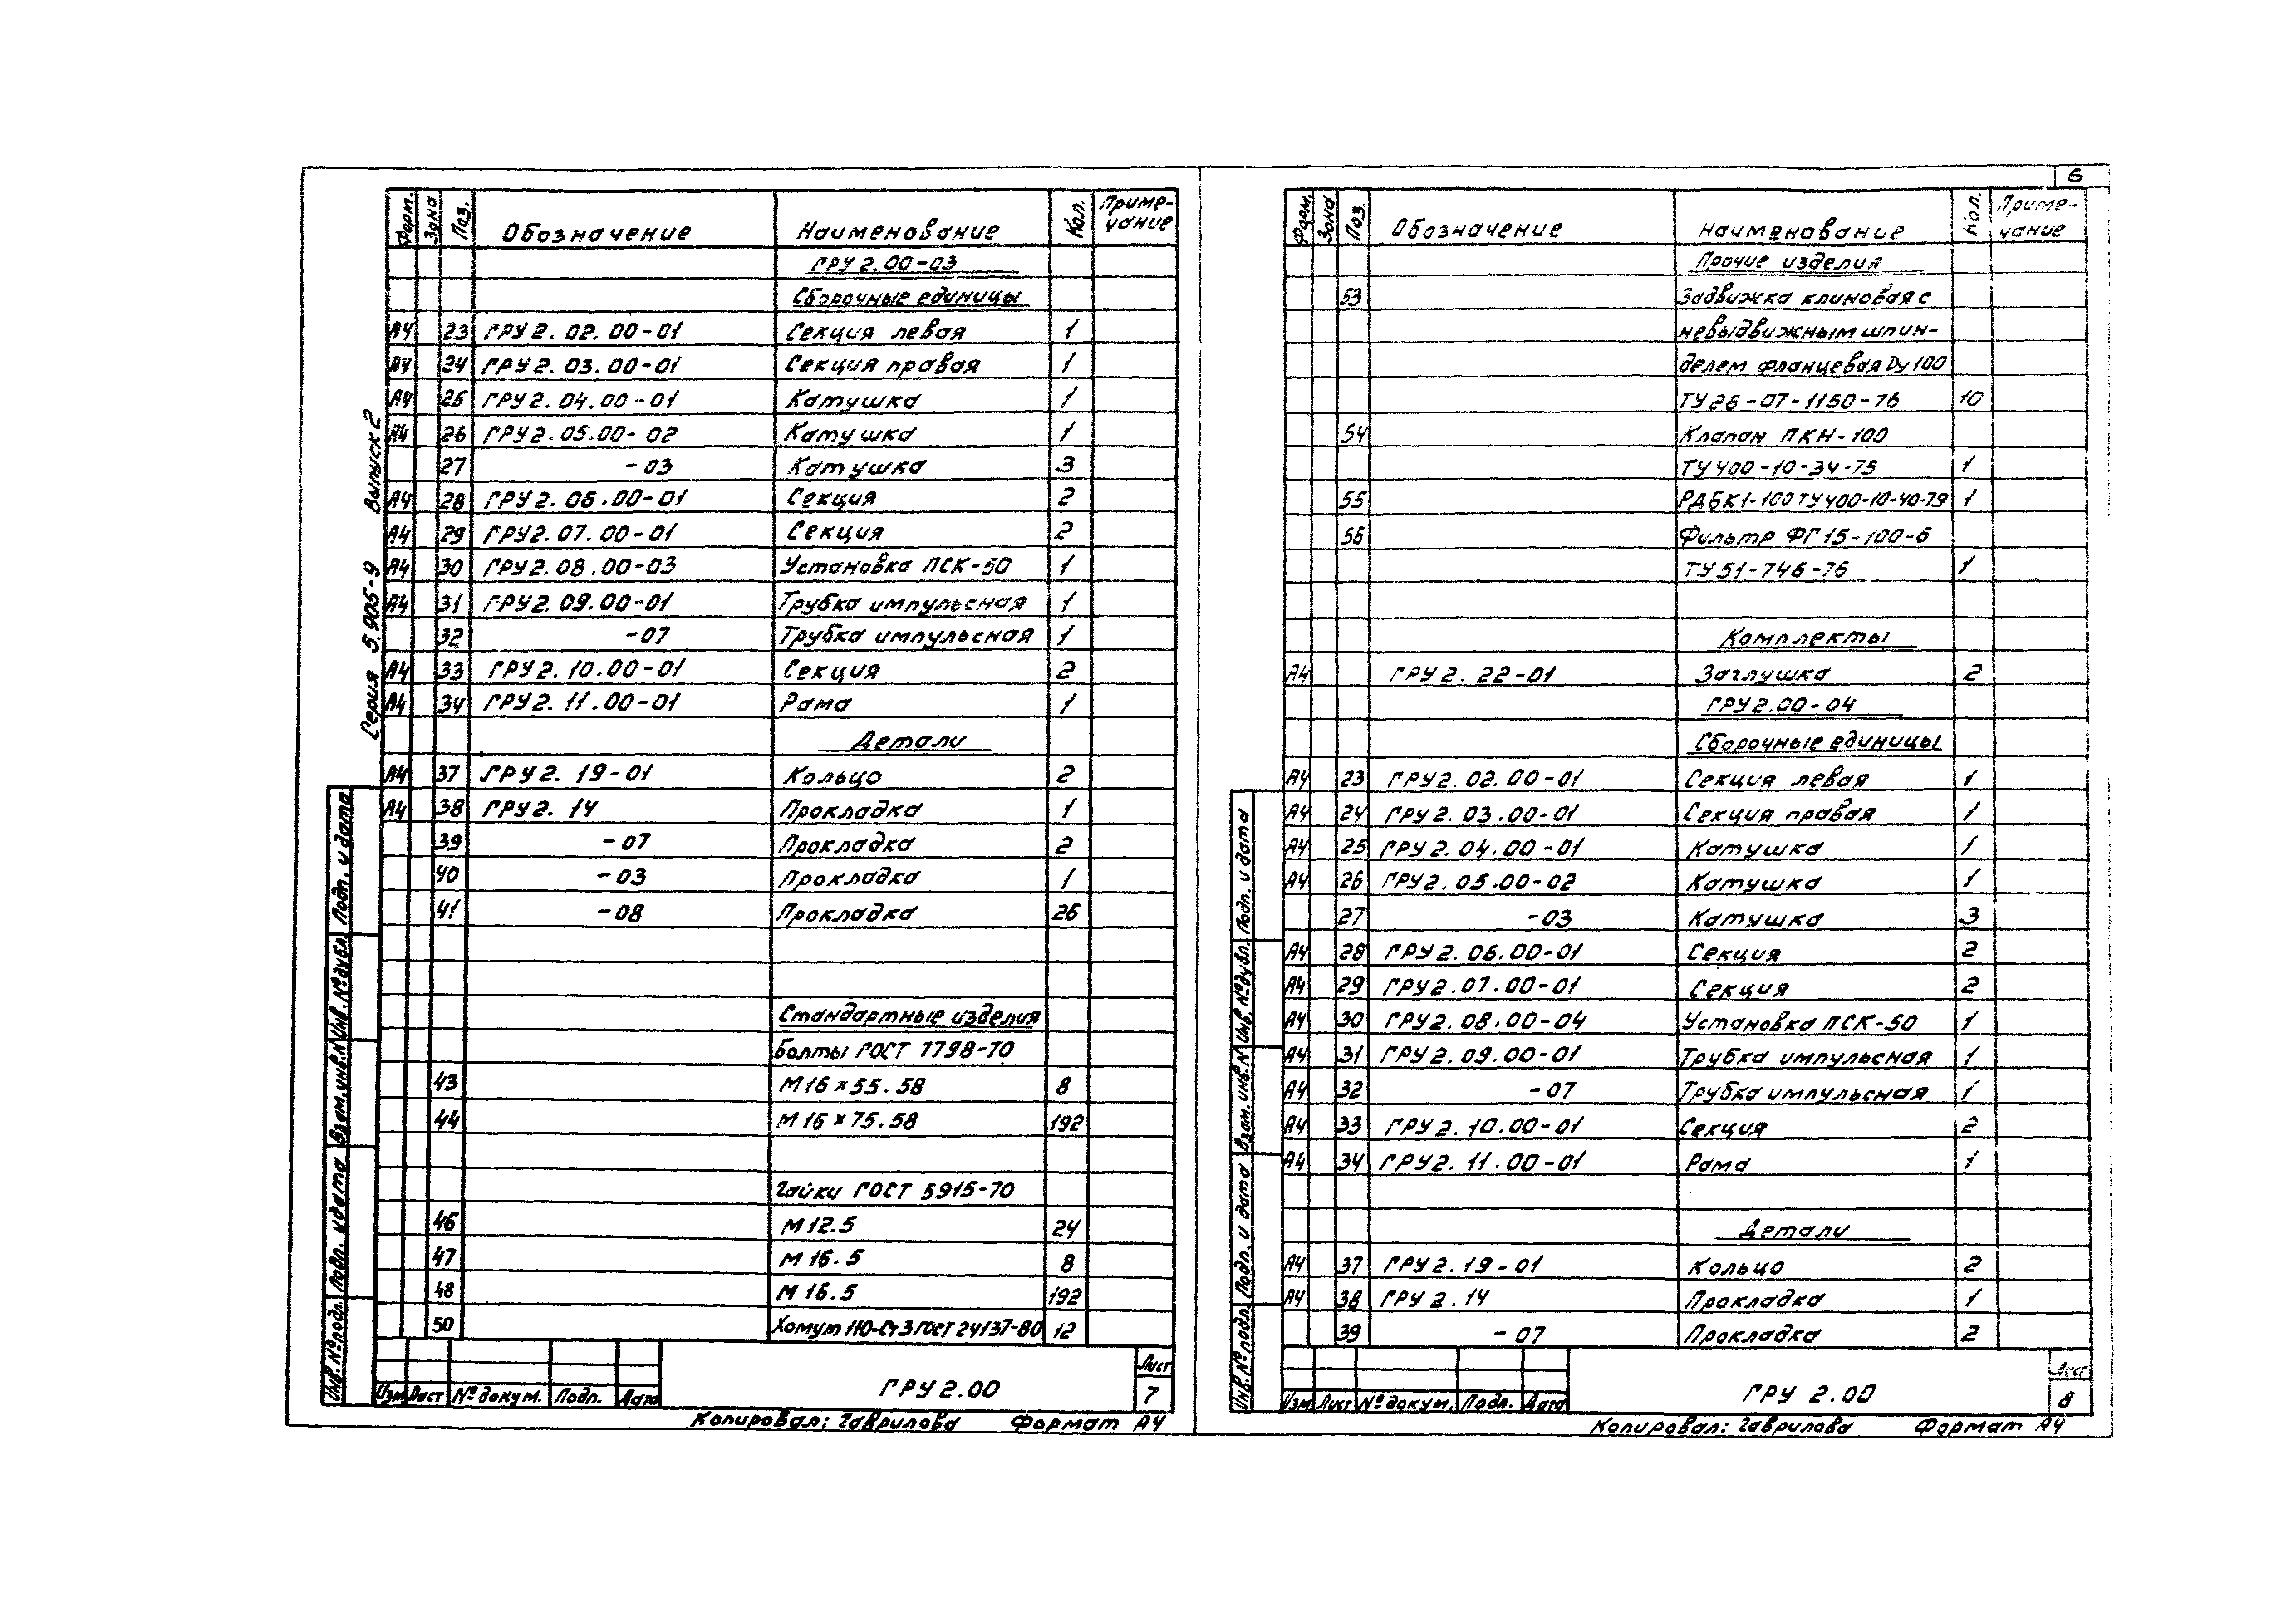 6
Серия 5.905-9 Выпуск 2
Форм. Зона Поз. Обозначение Наименование Кол. Приме-
чание
ГРУ 2.00-03
Сборочные единицы
А4 23 ГРУ 2.02.00-01 Секция левая 1
А4 24 ГРУ 2.03.00-01 Секция правая 1
А4 25 ГРУ 2.04.00-01 Катушка 1
А4 26 ГРУ 2.05.00-02 Катушка 1
27 -03 Катушка 3
А4 28 ГРУ 2.06.00-01 Секция 2
А4 29 ГРУ 2.07.00-01 Секция 2
А4 30 ГРУ 2.08.00-03 Установка ПСК-50 1
А4 31 ГРУ 2.09.00-01 Трубка импульсная 1
32 -07 Трубка импульсная 1
А4 33 ГРУ 2.10.00-01 Секция 2
А4 34 ГРУ 2.11.00-01 Рама 1
Детали
А4 37 ГРУ 2.19-01 Кольцо 2
А4 38 ГРУ 2.14 Прокладка 1
39 -07 Прокладка 2
40 -03 Прокладка 1
41 -08 Прокладка 26
Стандартные изделия
Болты ГОСТ 7798-70
43 М16×55.58 8
44 М16×75.58 192
Гайки ГОСТ 5915-70
46 М12.5 24
47 М16.5 8
48 М16.5 192
50 Хомут 110-Ст3 ГОСТ 24137-80 12
Инв.№подл. Подп. и дата Взам.инв.№ Инв.№дубл. Подп. и дата
Изм Лист №докум. Подп. Дата
ГРУ 2.00
Лист
7
Копировал: Гаврилова Формат А4
Форм. Зона Поз. Обозначение Наименование Кол. Приме-
чание
Прочие изделия
53 Задвижка клиновая с
невыдвижным шпин-
делем фланцевая Dу 100
ТУ 26-07-1150-76 10
54 Клапан ПКН-100
ТУ 400-10-34-75 1
55 РДБК1-100 ТУ 400-10-40-79 1
56 Фильтр ФГ15-100-6
ТУ 51-746-76 1
Комплекты
А4 ГРУ 2.22-01 Заглушка 2
ГРУ 2.00-04
Сборочные единицы
А4 23 ГРУ 2.02.00-01 Секция левая 1
А4 24 ГРУ 2.03.00-01 Секция правая 1
А4 25 ГРУ 2.04.00-01 Катушка 1
А4 26 ГРУ 2.05.00-02 Катушка 1
27 -03 Катушка 3
А4 28 ГРУ 2.06.00-01 Секция 2
А4 29 ГРУ 2.07.00-01 Секция 2
А4 30 ГРУ 2.08.00-04 Установка ПСК-50 1
А4 31 ГРУ 2.09.00-01 Трубка импульсная 1
А4 32 -07 Трубка импульсная 1
А4 33 ГРУ 2.10.00-01 Секция 2
А4 34 ГРУ 2.11.00-01 Рама 1
Детали
А4 37 ГРУ 2.19-01 Кольцо 2
А4 38 ГРУ 2.14 Прокладка 1
39 -07 Прокладка 2
Инв.№подл. Подп. и дата Взам.инв.№ Инв.№дубл. Подп. и дата
Изм Лист №докум. Подп. Дата
ГРУ 2.00
Лист
8
Копировал: Гаврилова Формат А4